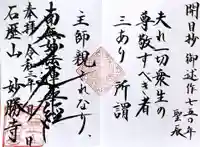 開目抄 御述作七五〇年
聖辰
夫れ一切衆生の
尊敬すべき者
三あり 所謂
主師親これなり、
南無妙法蓮華経
奉拝 令和三年 月 日
石塁山 妙勝寺